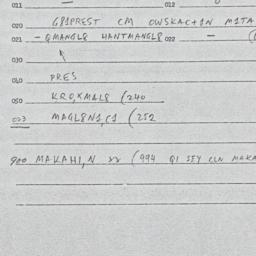 011 — 012
020 G81PREST CM OWSKAC+1N M1TA
021 - QMANGL8 HANTMANGL8 022 — (
030
040 PRES
050 KRO,XMAL8 (240
023 MAGL8N1,C1 (252
900 MAKAHI,N >> (994 Q1 SEY CLN MAKA